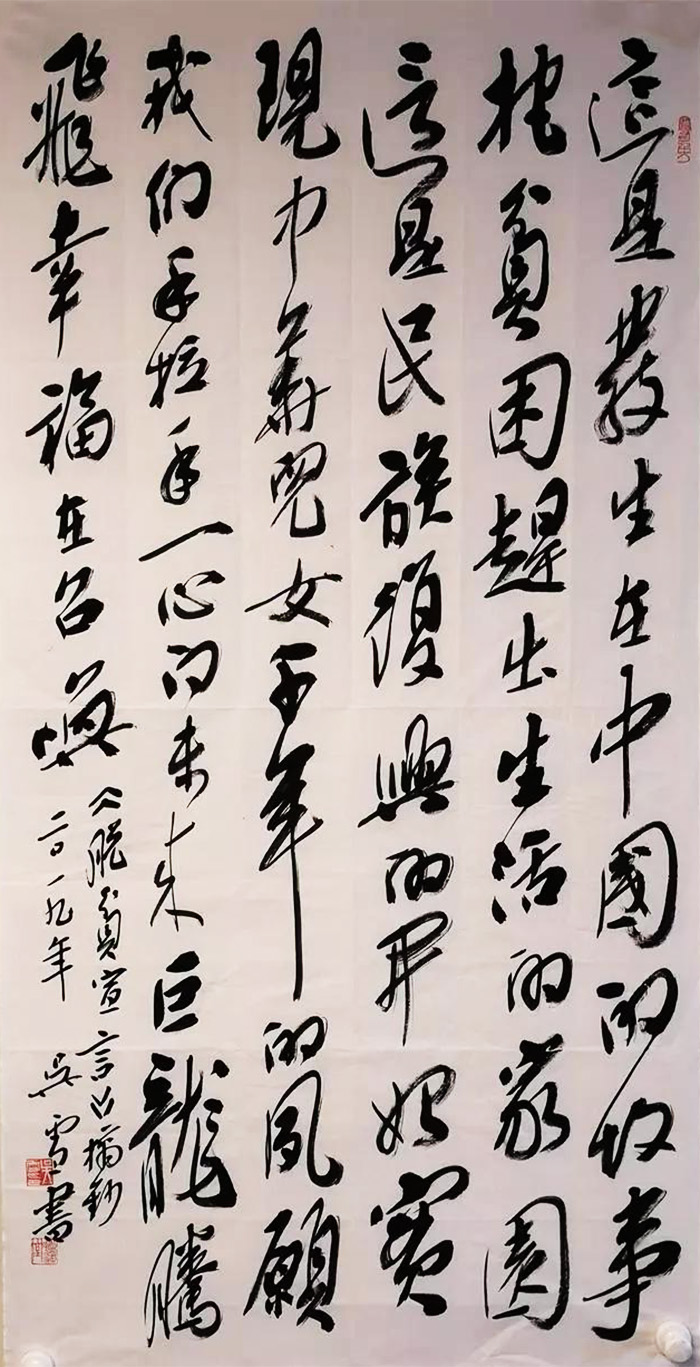 這是發生在中國的故事
把貧困趕出生活的家園
這是民族復興的開始實
現中華兒女千年的夙願
我们手拉手一心向未来巨龍騰
飛幸福在召喚
《脱貧宣言》摘鈔
二〇一九年 吳雪書